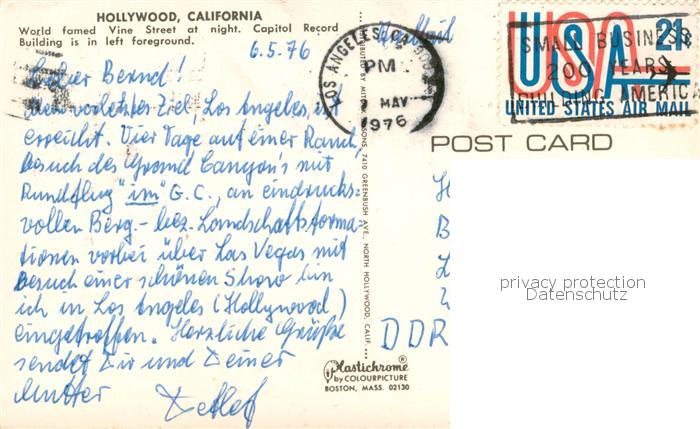 HOLLYWOOD, CALIFORNIA
World famed Vine Street at night. Capitol Record
Building is in left foreground.
6.5.76
Lieber Bernd!
Mein vorletztes Ziel, Los Angeles, ist
erreicht. Vier Tage auf einer Ranch,
besuch des Grand Canyon's mit
Rundflug "im" G.C., an eindrucks-
vollen Berg.- bez. Landschaftsforma-
tionen vorbei über Las Vegas mit
besuch einer schönen Show bin
ich in Los Angeles (Hollywood)
eingetroffen. Herzliche Grüße
sendet Dir und Deiner
Mutter Detlef
DISTRIBUTED BY MITOCK & SONS, 7410 GREENBUSH AVE., NORTH HOLLYWOOD, CALIF.
Plastichrome®
by COLOURPICTURE
BOSTON, MASS. 02130
LOS ANGELES, CA
PM
MAY
1976
SMALL BUSINESS
200 YEARS
BUILDING AMERICA
USA 21c
UNITED STATES AIR MAIL
POST CARD
H
B
L
DDR
privacy protection
Datenschutz